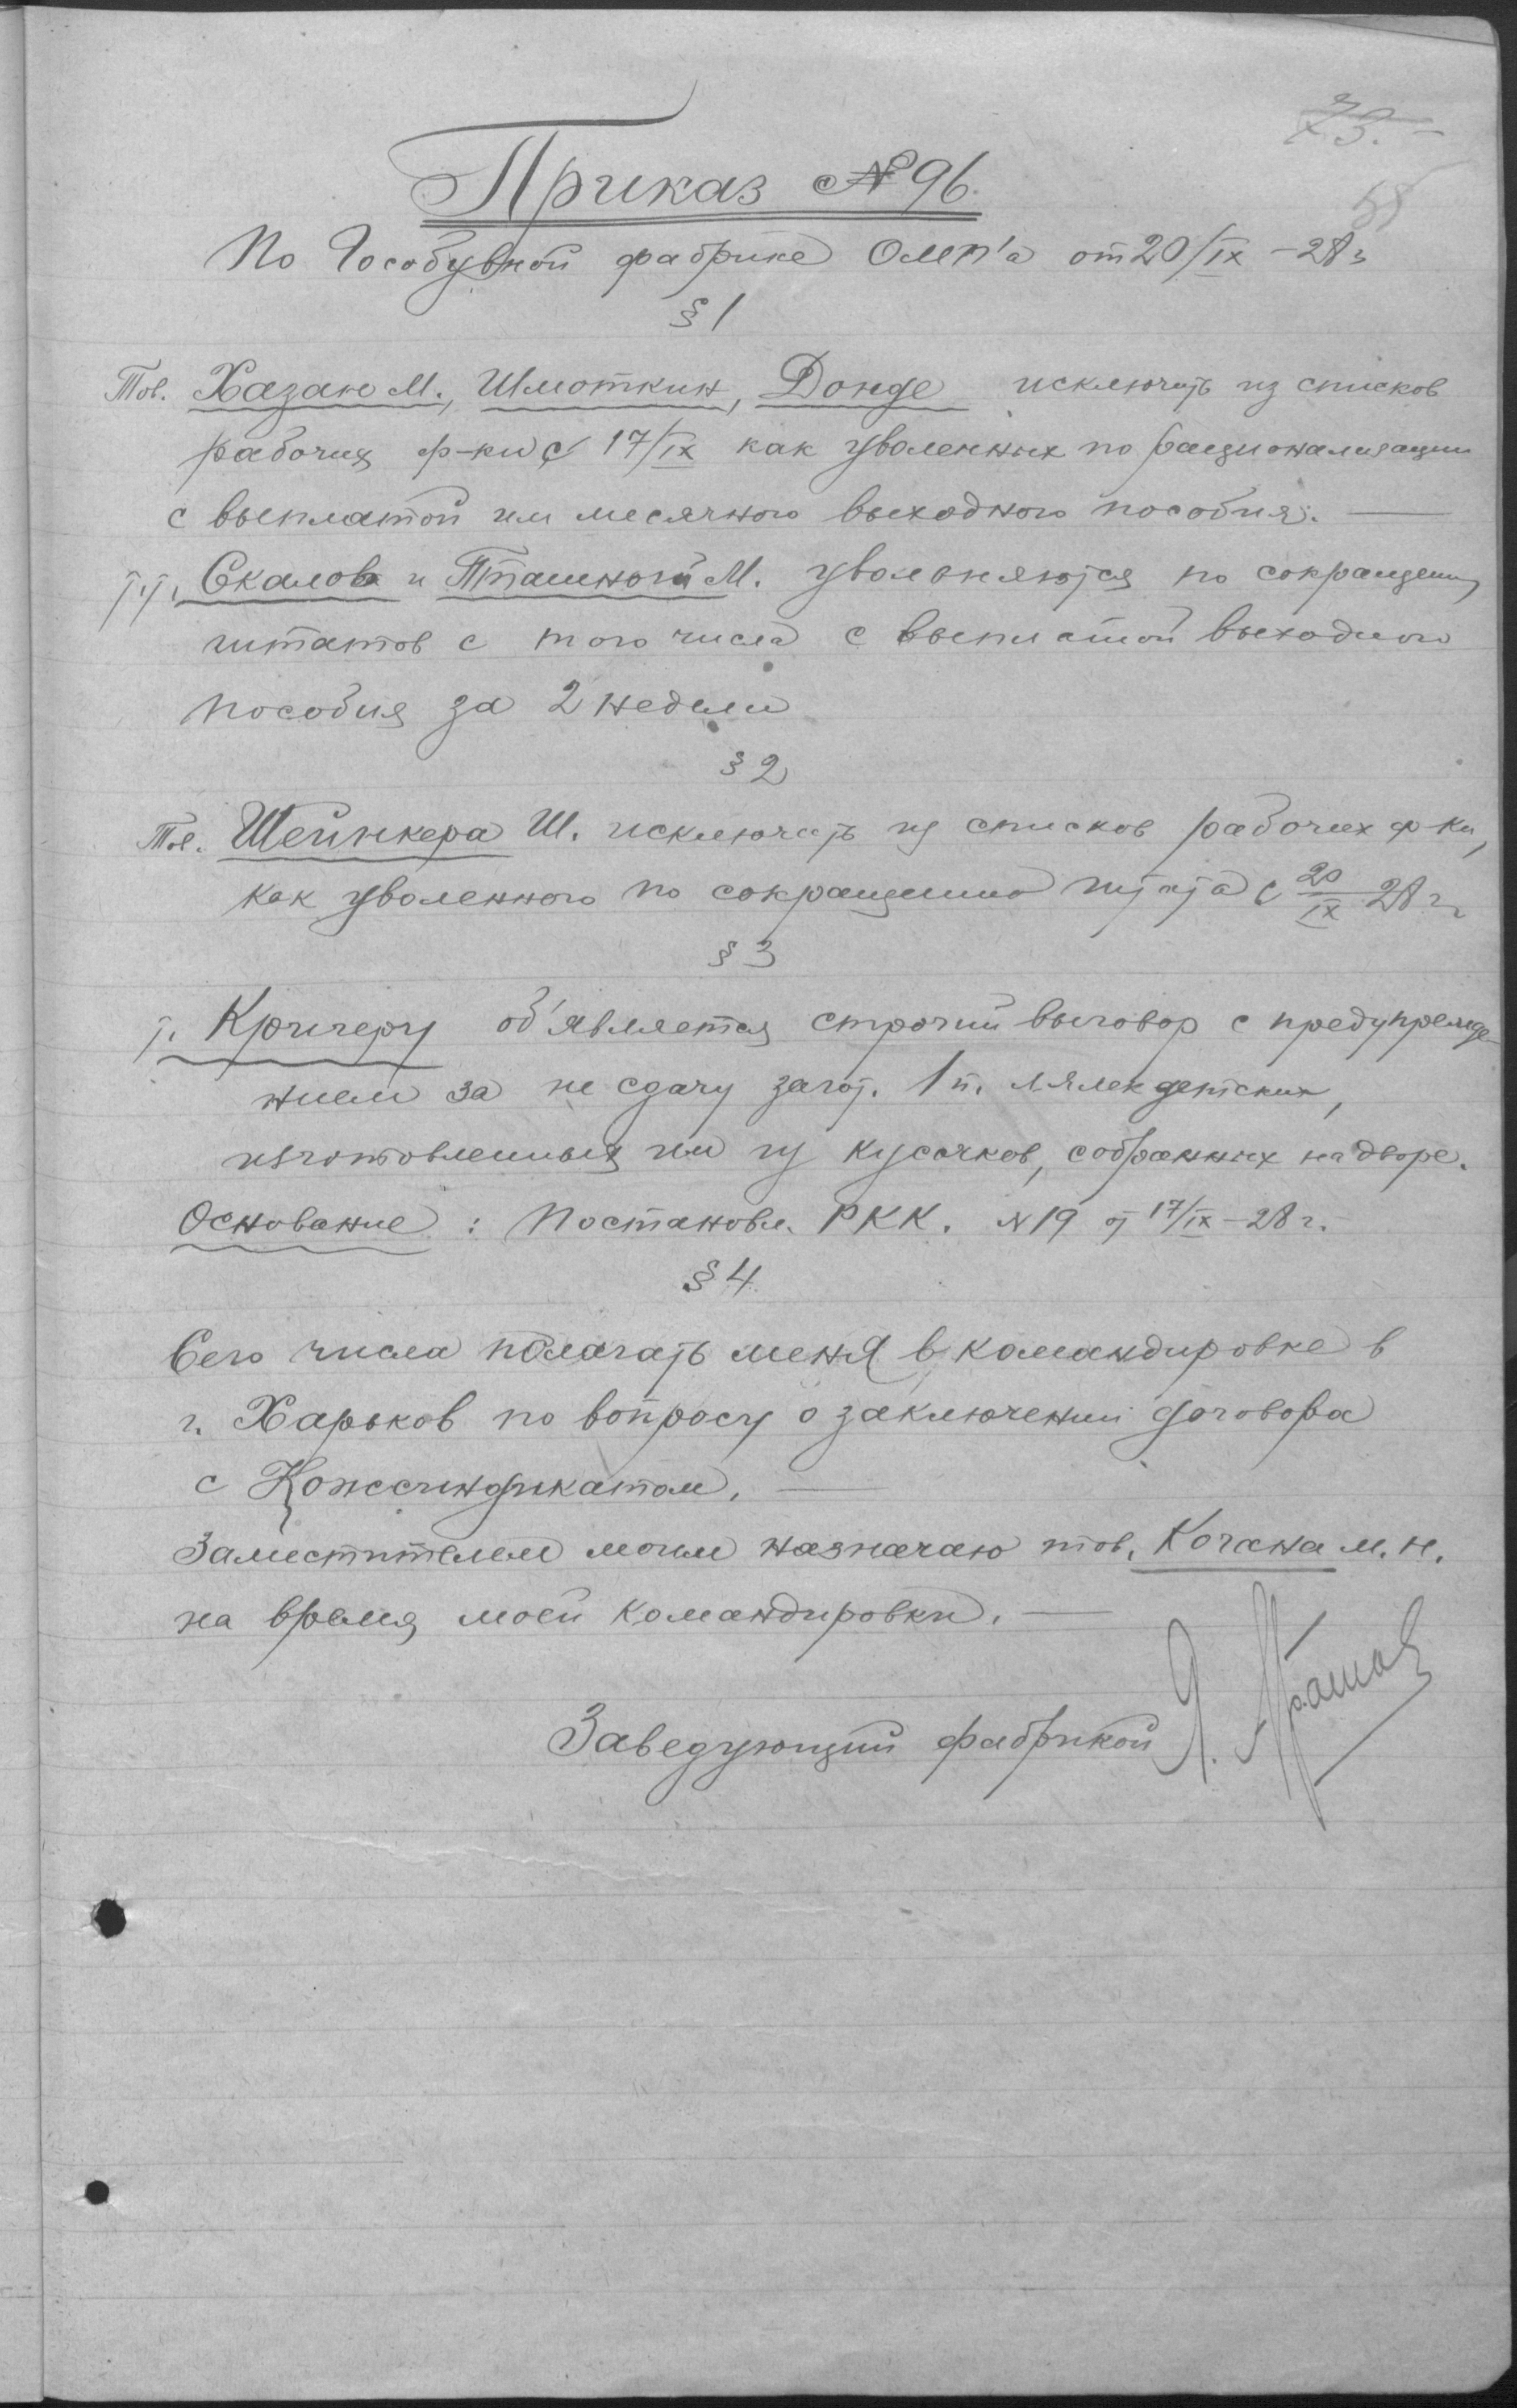 73.
58
Приказ № 96.
По Гособувной фабрике ОМП'а от 20/IX - 28 г
§ 1
Тов. Хазан М., Шмоткин, Донде исключить из списков
рабочих ф-ки с 17/IX как уволенных по рационализации
с выплатой им месячного выходного пособия. —
т.т. Скалов и Пташногй М. увольняются по сокращению
штатов с того числа с выплатой выходного
пособия за 2 недели
§ 2
Тов. Шейнкера Ш. исключить из списков рабочих ф-ки,
как уволенного по сокращению штата с 20/IX 28 г.
§ 3
т. Кричеру об'является строгий выговор с предупрежде-
нием за не сдачу загот. 1 п. лялек детских,
изготовленных им из кусочков, собранных на дворе.
Основание: Постановл. РКК. № 19 от 17/IX - 28 г.
§ 4
Сего числа полагать меня в командировке в
г. Харьков по вопросу о заключении договора
с Кожсиндикатом. —
Заместителем моим назначаю тов. Когана М. Н.
на время моей командировки. —
Заведующий фабрикой Я.